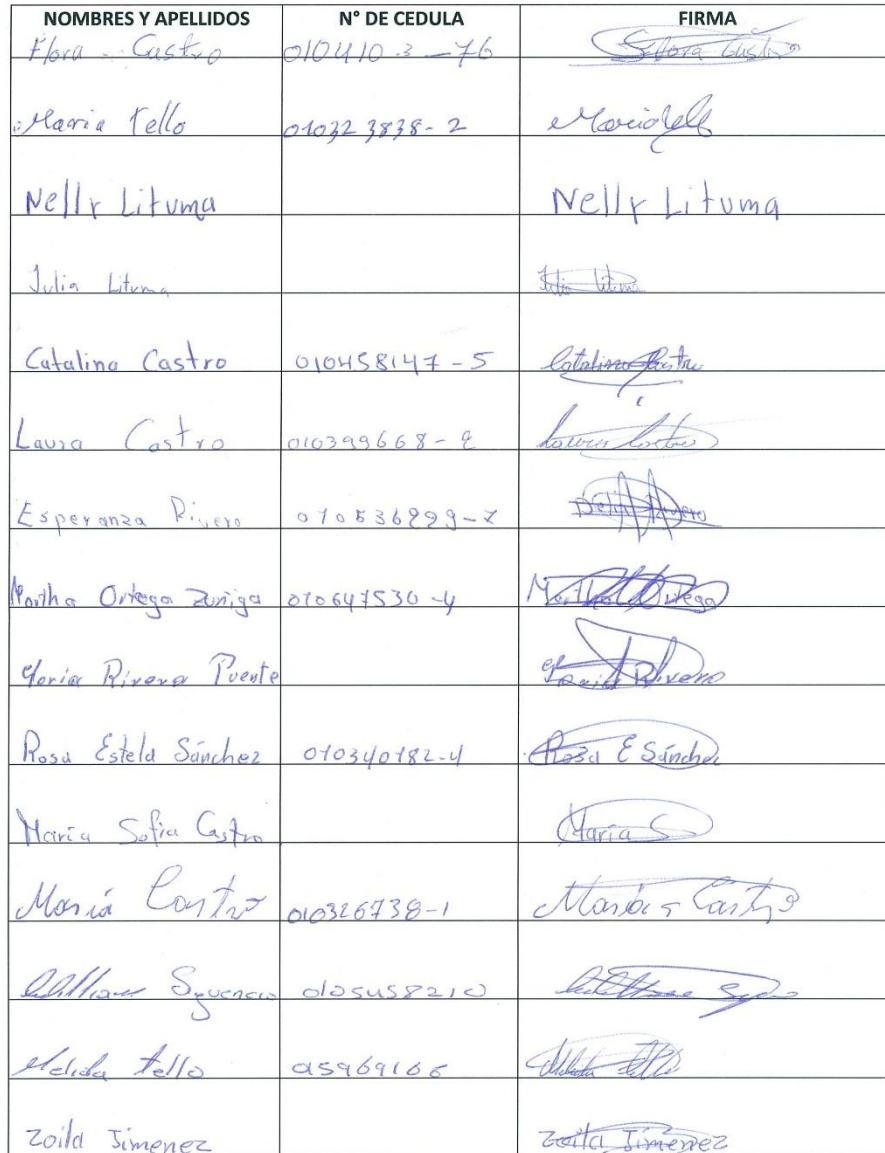 NOMBRES Y APELLIDOS N° DE CEDULA FIRMA
Flora Castro 010410 3 - 76 Flora Castro
Maria Tello 010323838-2 Maria Tello
Nelly Lituma Nelly Lituma
Julia Lituma Julia Lituma
Catalina Castro 010458147-5 Catalina Castro
Laura Castro 010399668-2 Laura Castro
Esperanza Rivero Rivero
Martha Ortega Zuniga 010647530-4 Martha Ortega
Gloria Rivera Puente Rivero
Rosa Estela Sánchez 010340182-4 Rosa E Sánchez
María Sofia Castro María S
María Castro 010326738-1 María Castro
William 0105458210
Melida Tello Tello
Zoila Jimenez Zoila Jimenez